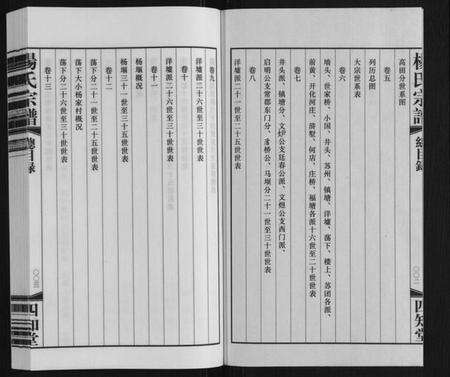 楊氏宗譜
總目錄
四知堂
高田分世系图
卷五
列历总图
大宗世系表
卷六
墙头、世家桥、小园、井头、苏州、镇塘、洋墟、荡下、楼上、苏团各派、
前黄、开化河庄、浒墅、何店、庄桥、福塘各派十六世至二十世世表
卷七
井头派、镇塘分、文炉公支廷春公派、文煜公支西门派、
启明公支常郡东门分、洛桥公、马堰分二十一世至三十世世表
卷八
洋墟派二十一世至二十五世世表
卷九
洋墟派二十六世至三十世世表
卷十
洋墟派二十六世至三十世世表
卷十一
杨堰概况
杨堰三十一世至三十五世世表
卷十二
荡下分二十一世至二十五世世表
荡下大小杨家村概况
荡下分二十六世至三十世世表
卷十三
楊氏宗譜
總目錄
四知堂